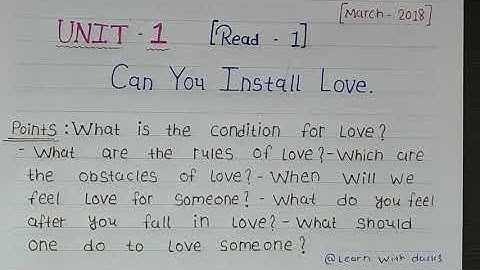 [March - 2018]
UNIT - 1 [Read - 1]
Can You Install Love.
Points : What is the condition for Love?
- What are the rules of Love? - Which are
the obstacles of Love? - When Will we
feel Love for Someone? - What do you feel
after you fall in Love? - What should
one do to Love Someone?